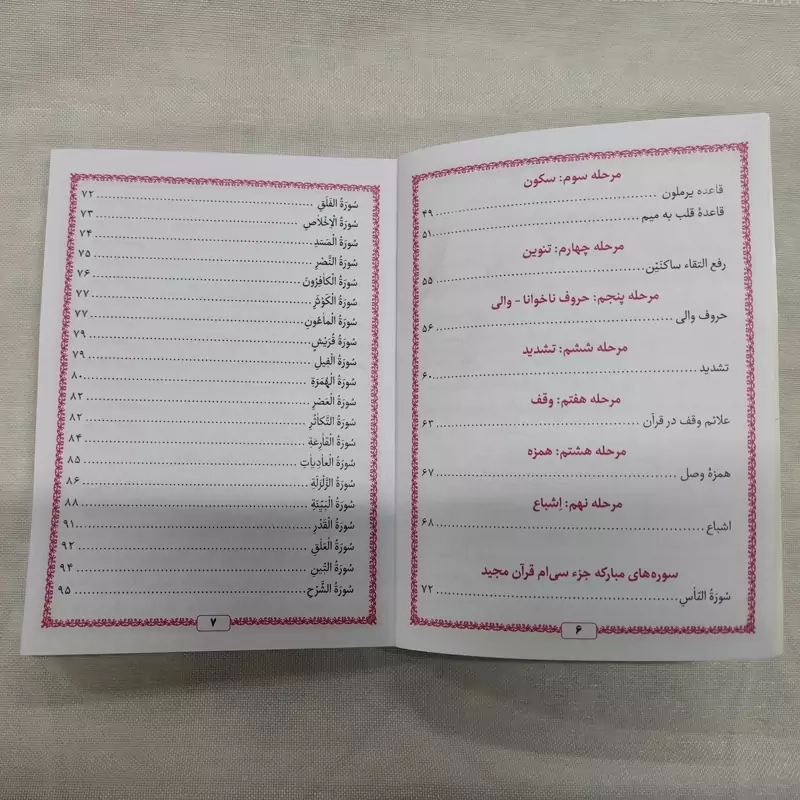 مرحله سوم: سکون
قاعده یرملون ........ ۴۹
قاعدهٔ قلب به میم ........ ۵۱
مرحله چهارم: تنوین
رفع التقاء ساکنَیْن ........ ۵۵
مرحله پنجم: حروف ناخوانا - والی
حروف والی ........ ۵۶
مرحله ششم: تشدید
تشدید ........ ۶۰
مرحله هفتم: وقف
علائم وقف در قرآن ........ ۶۳
مرحله هشتم: همزه
همزهٔ وصل ........ ۶۷
مرحله نهم: اِشباع
اشباع ........ ۶۸
سوره‌های مبارکه جزء سی‌ام قرآن مجید
سُورَةُ النّاسِ ........ ۷۲
۶
سُورَةُ الفَلَقِ ........ ۷۲
سُورَةُ الْاِخْلاصِ ........ ۷۳
سُورَةُ الْمَسَدِ ........ ۷۴
سُورَةُ النَّصْرِ ........ ۷۵
سُورَةُ الْكافِرُونَ ........ ۷۶
سُورَةُ الْكَوْثَرِ ........ ۷۷
سُورَةُ الْماعُونِ ........ ۷۷
سُورَةُ قُرَيْشٍ ........ ۷۹
سُورَةُ الْفِيلِ ........ ۷۹
سُورَةُ الْهُمَزَةِ ........ ۸۰
سُورَةُ الْعَصْرِ ........ ۸۲
سُورَةُ التَّكاثُرِ ........ ۸۲
سُورَةُ الْقارِعَةِ ........ ۸۴
سُورَةُ الْعادِياتِ ........ ۸۵
سُورَةُ الزَّلْزَلَةِ ........ ۸۶
سُورَةُ الْبَيِّنَةِ ........ ۸۸
سُورَةُ الْقَدْرِ ........ ۹۱
سُورَةُ الْعَلَقِ ........ ۹۲
سُورَةُ التّينِ ........ ۹۴
سُورَةُ الشَّرْحِ ........ ۹۵
۷